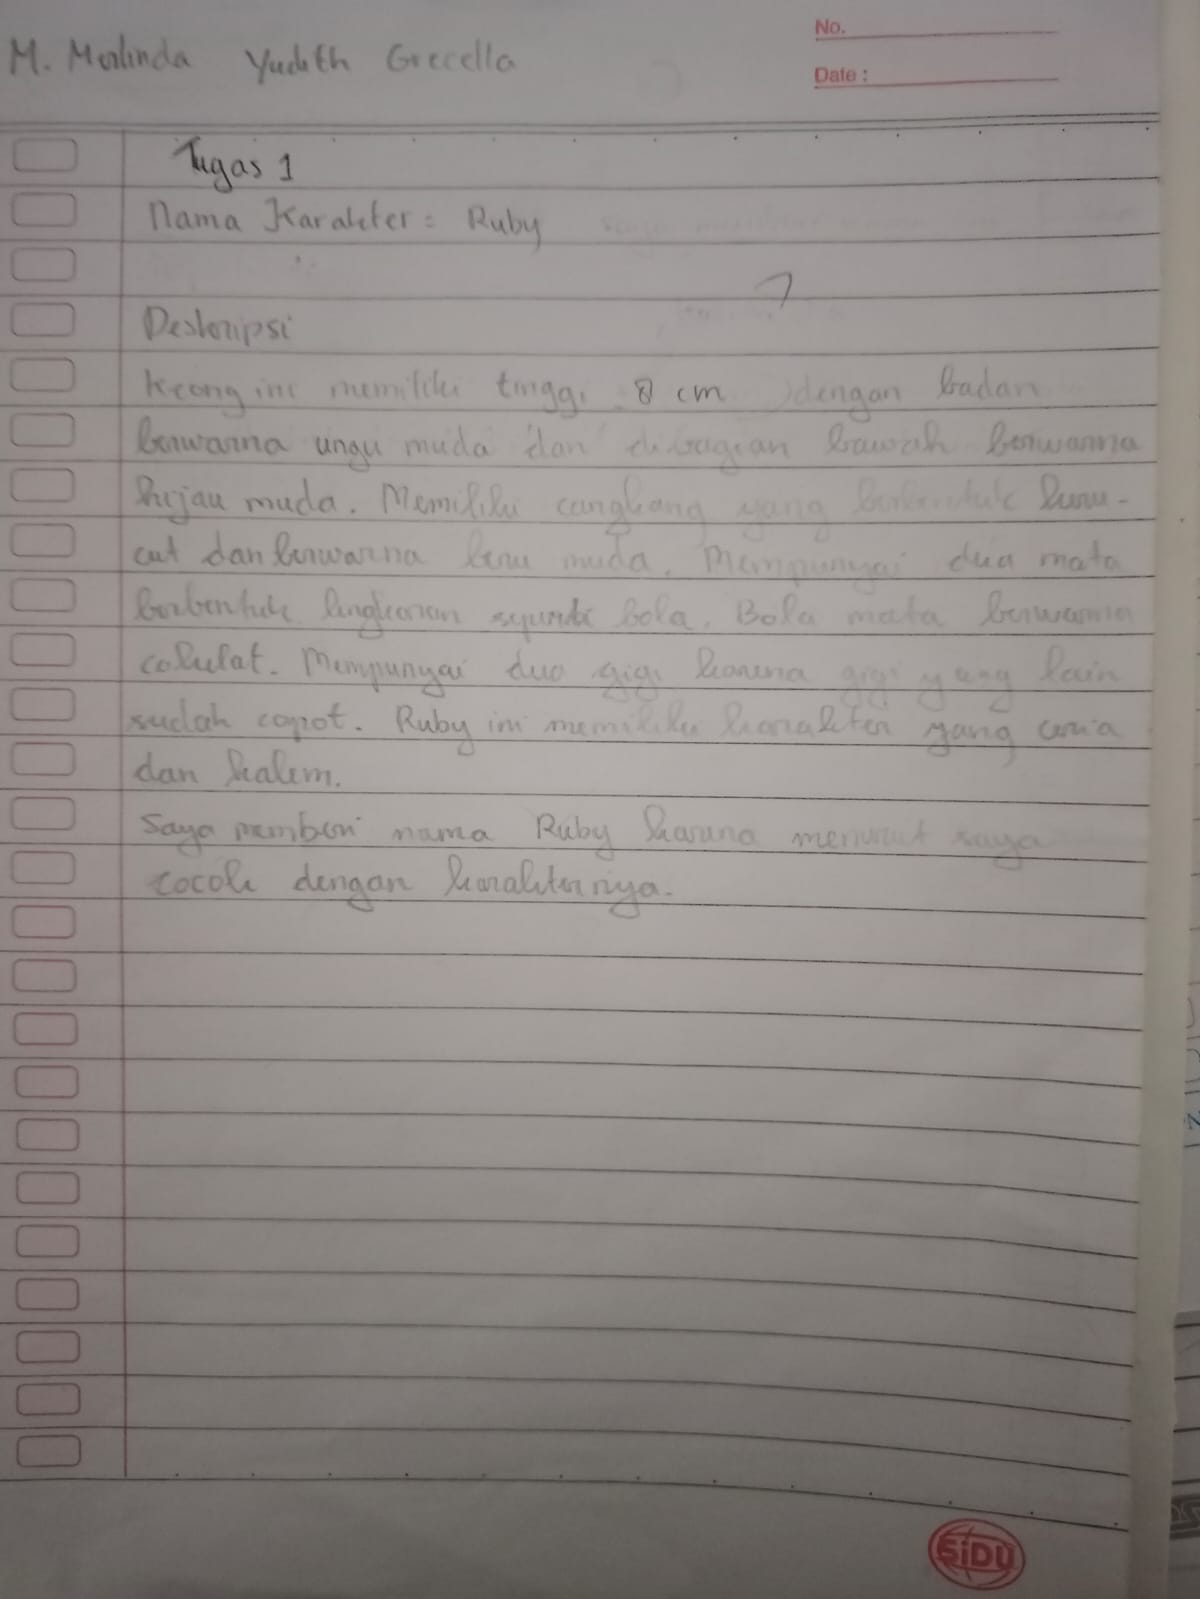 No.
M. Merlinda Yudith Grecella
Date :
Tugas 1
Nama Karakter : Ruby
Deskripsi
Keong ini memiliki tinggi 8 cm dengan badan
berwarna ungu muda dan dibagian bawah berwarna
hijau muda. Memiliki cangkang yang berbentuk keru-
cut dan berwarna biru muda. Mempunyai dua mata
berbentuk lingkaran seperti bola. Bola mata berwarna
cokulat. Mempunyai dua gigi karena gigi yang lain
sudah copot. Ruby ini memiliki karakter yang ceria
dan kalem.
Saya memberi nama Ruby karena menurut saya
cocok dengan karakternya.
SiDU